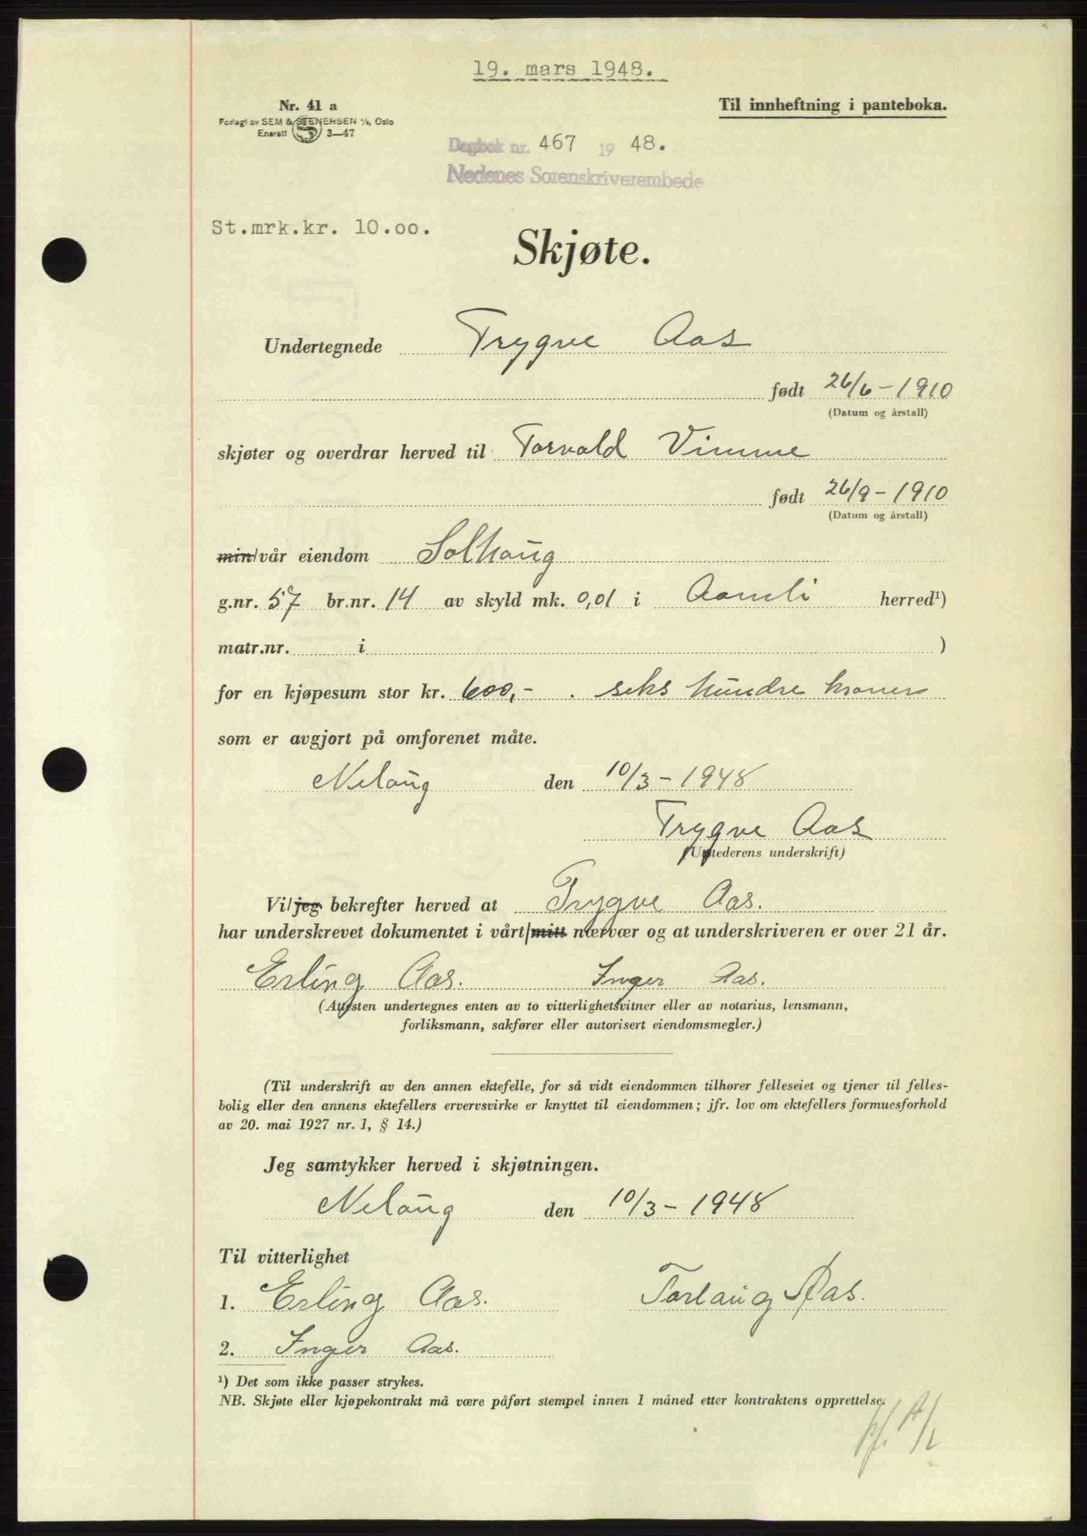 19. mars 1948.
Nr. 41 a
Til innheftning i panteboka.
Forlagt av SEM & STENERSEN A/S, Oslo
Enerett S 3—47
Dagbok nr. 467 19 48.
Nedenes Sorenskriverembede
St.mrk.kr. 10.oo.
Skjøte.
Undertegnede Trygve Aas
født 26/6 - 1910
(Datum og årstall)
skjøter og overdrar herved til Torvald Vimme
født 26/9 - 1910
(Datum og årstall)
min/vår eiendom Solhaug
g.nr. 57 br.nr. 14 av skyld mk. 0,01 i Aamli herred¹)
matr.nr. i )
for en kjøpesum stor kr. 600,- . seks hundre kroner
som er avgjort på omforenet måte.
Nelaug den 10/3 - 1948
Trygve Aas
(Utstederens underskrift)
Vi/jeg bekrefter herved at Trygve Aas.
har underskrevet dokumentet i vårt/mitt nærvær og at underskriveren er over 21 år.
Erling Aas. Inger Aas.
(Attesten undertegnes enten av to vitterlighetsvitner eller av notarius, lensmann,
forliksmann, sakfører eller autorisert eiendomsmegler.)
(Til underskrift av den annen ektefelle, for så vidt eiendommen tilhører felleseiet og tjener til felles-
bolig eller den annens ektefellers ervervsvirke er knyttet til eiendommen; jfr. lov om ektefellers formuesforhold
av 20. mai 1927 nr. 1, § 14.)
Jeg samtykker herved i skjøtningen.
Nelaug den 10/3 - 1948
Til vitterlighet
1. Erling Aas. Torlaug Aas.
2. Inger Aas.
¹) Det som ikke passer strykes.
NB. Skjøte eller kjøpekontrakt må være påført stempel innen 1 måned etter kontraktens opprettelse.